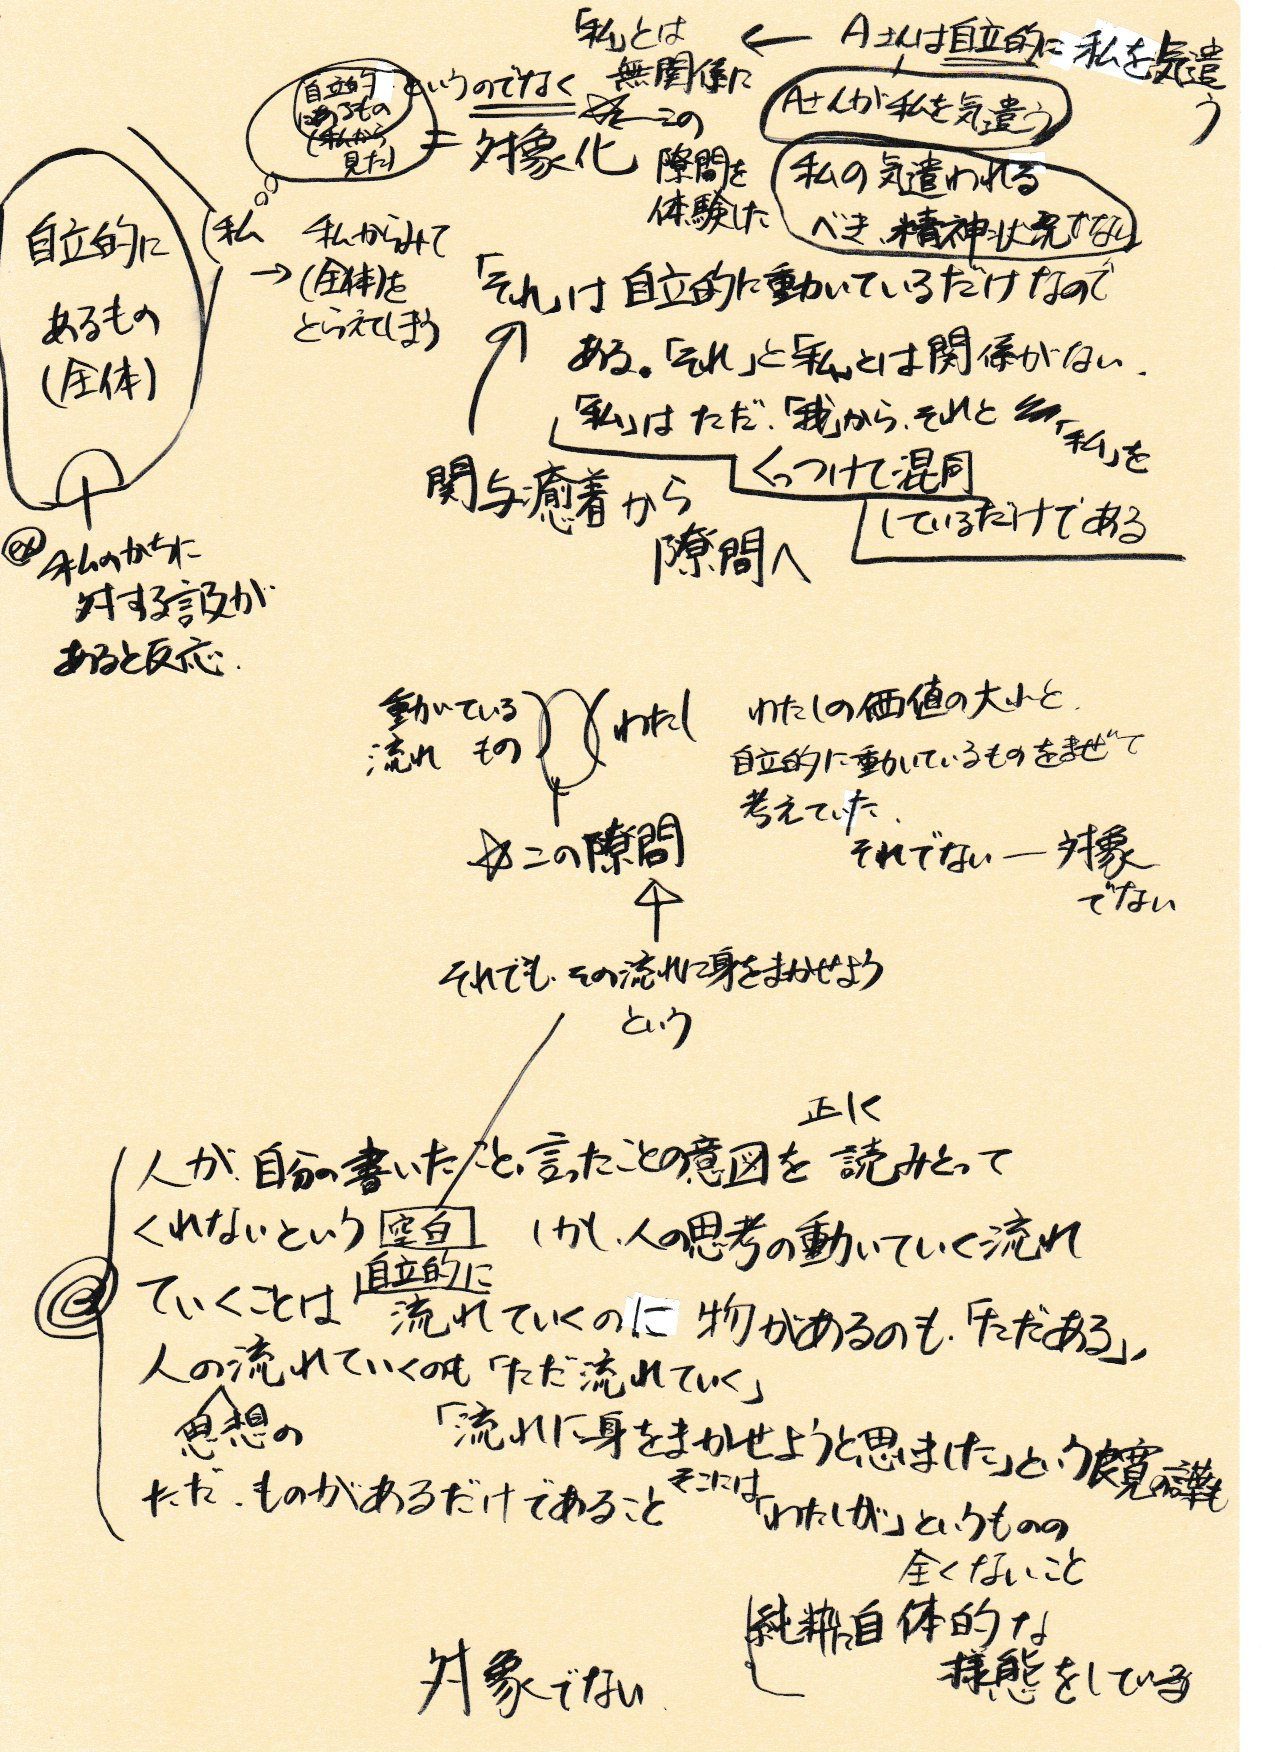 「私」とは
無関係に
← Aさんは自立的に私を気遣
う
Aさんが私を気遣う
私の気遣われる
べき、精神状況でなく
自立的
にあるもの
(私から
見た)
というのでなく
= 対象化
☆←この
隙間を
体験した
自立的に
あるもの
(全体)
私
→
私からみて
(全体)を
とらえてしまう
「それ」は自立的に動いているだけなので
ある。「それ」と「私」とは関係がない.
「私」はただ、「我」から、それと「私」を
くっつけて混同
しているだけである
関与癒着から
隙間へ
ex
私のかちに
対する言及が
あると反応.
動いている
流れ もの
わたし
☆この隙間
わたしの価値の大小と.
自立的に動いているものをまぜて
考えていた.
それでない — 対象
でない
それでも、その流れに身をまかせよう
という
正しく
人が、自分の書いたこと、言ったことの意図を読みとって
くれないという空白 しかし、人の思考の動いていく流れ
ていくことは自立的に
流れていくのに 物があるのも、「ただある」、
人の流れていくのも「ただ流れていく」
思想の
「流れに身をまかせようと思ました」という良寛の譯も
ただ、ものがあるだけであること そこには「わたしが」というものの
全くないこと
純粋に自体的な
様態をしている
対象でない